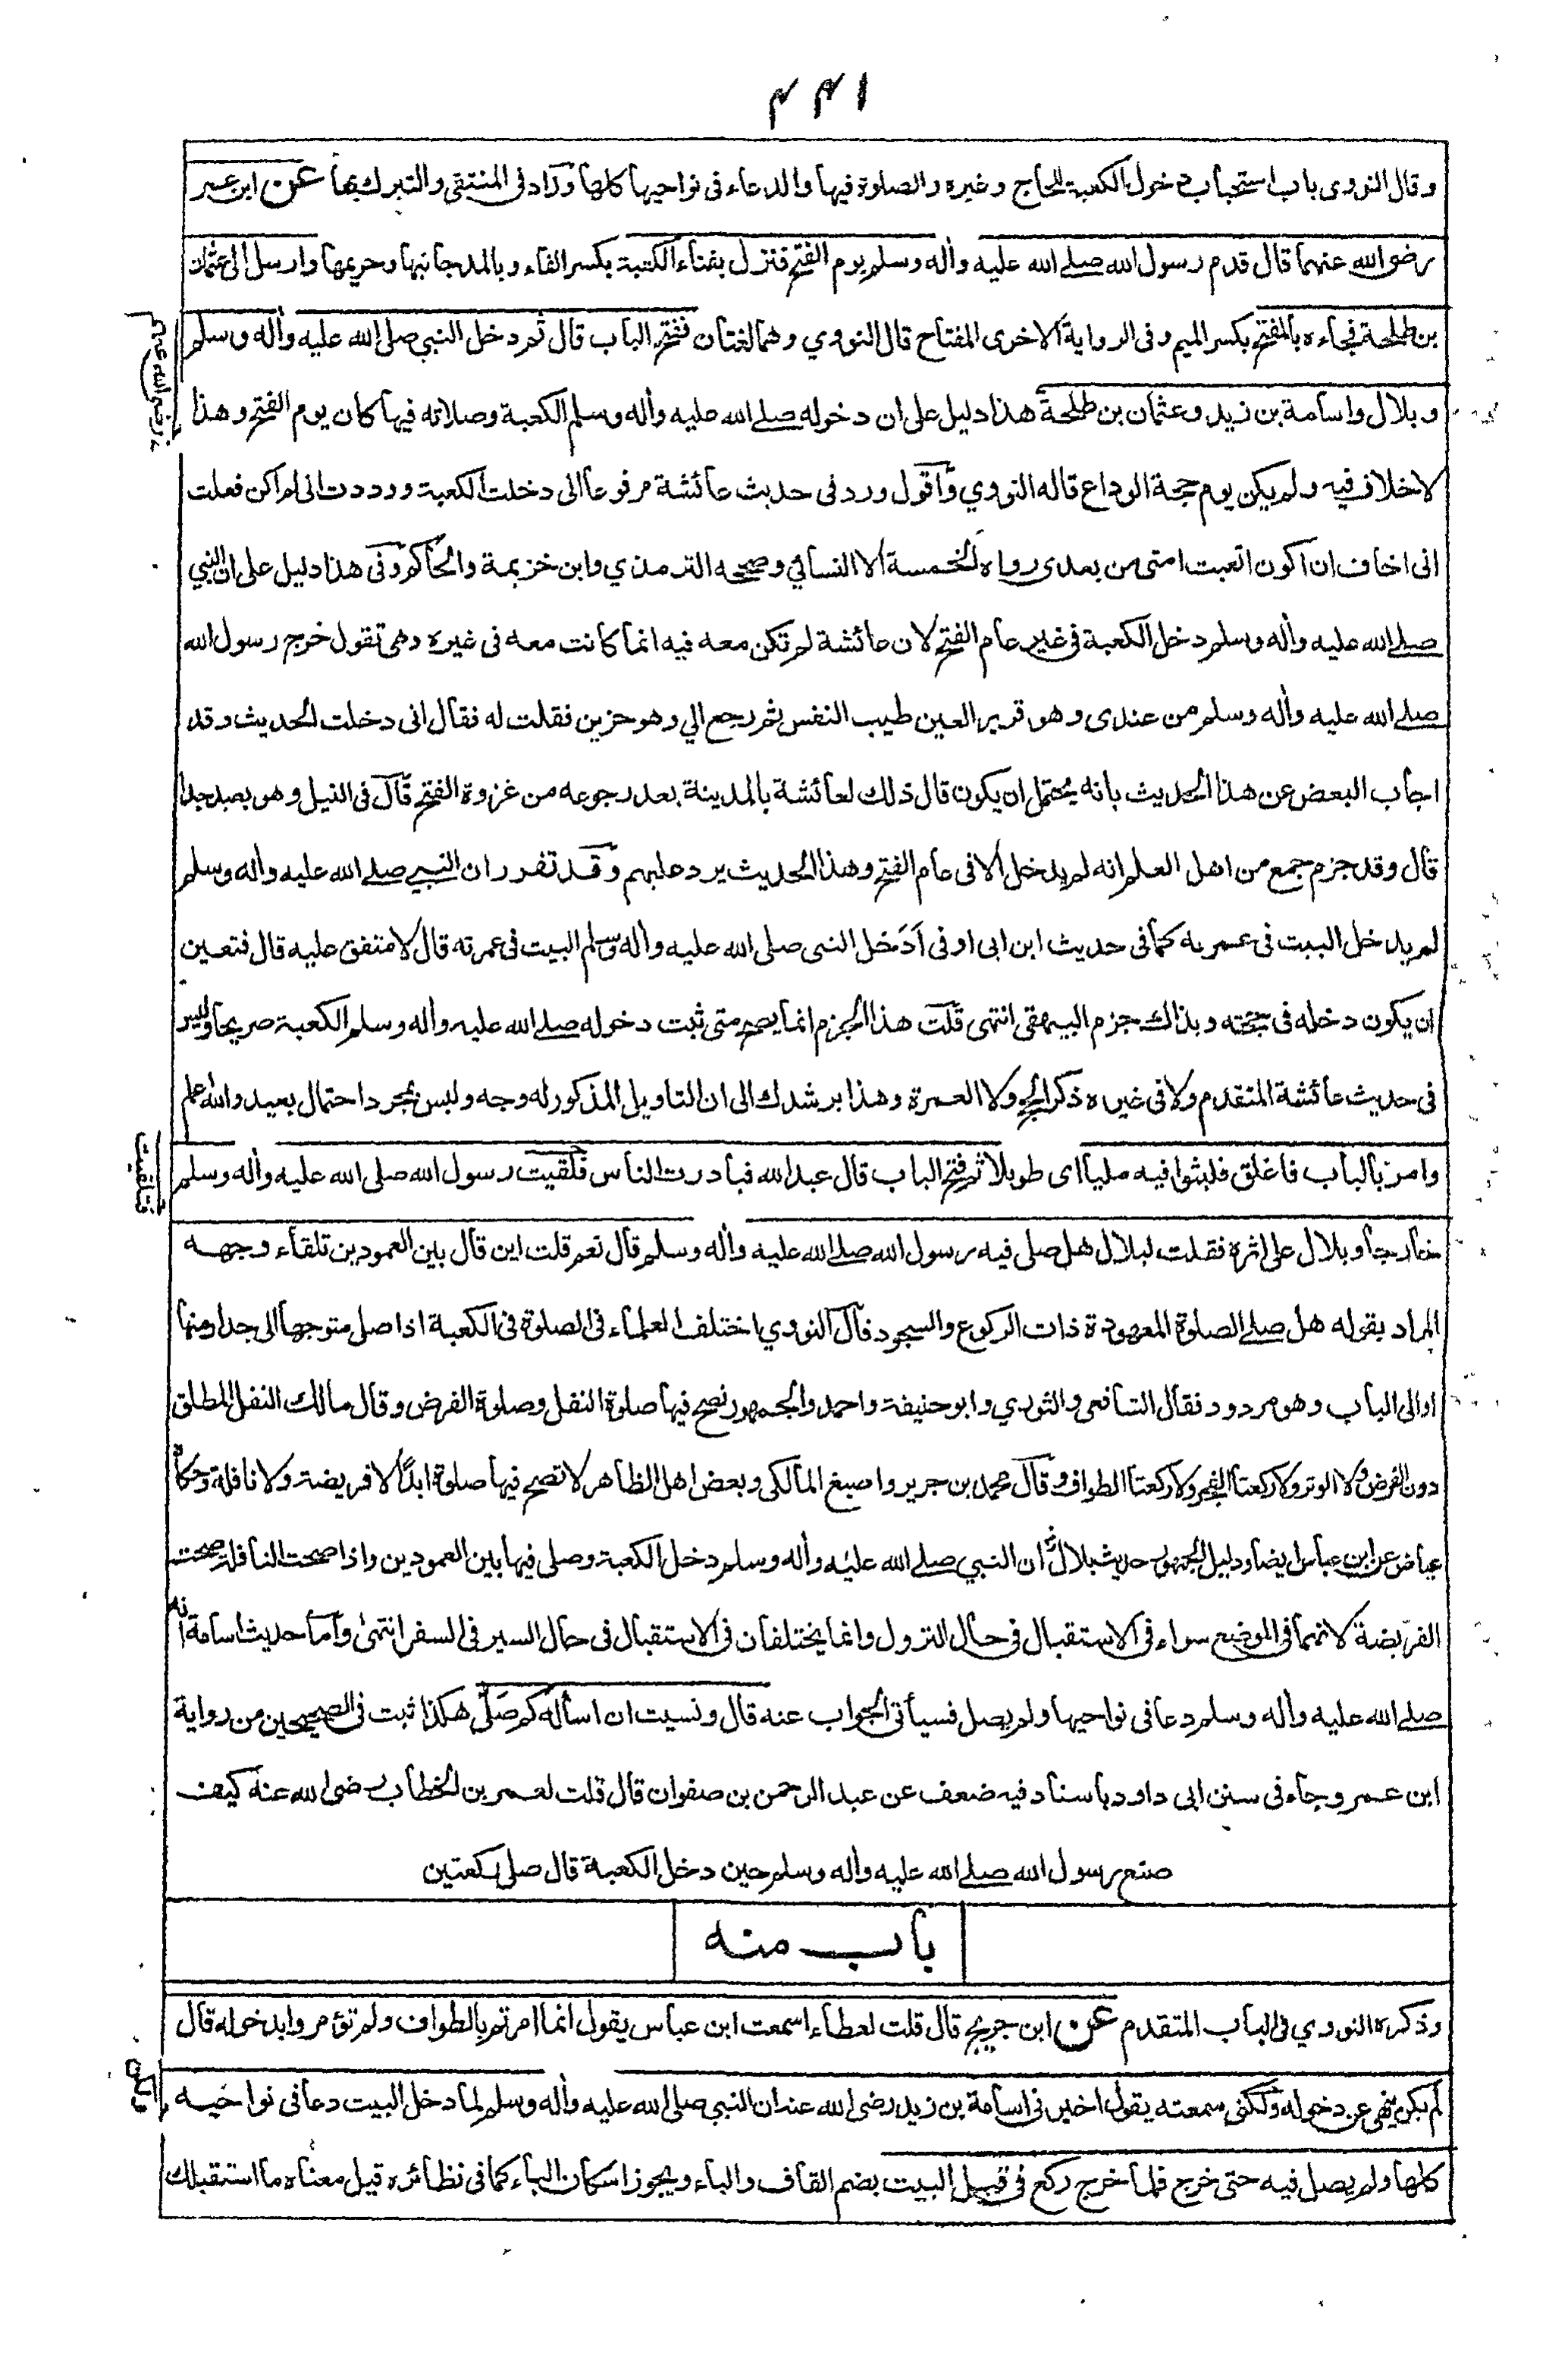 ٤٤١
وقال النووي باب استحباب دخول الكعبة للحاج وغيره والصلوة فيها والدعاء فى نواحيها كلها وزاد فى المنتقى والتبرك بها عن ابن عمر
رضى الله عنهما قال قدم رسول الله صلے الله عليه وأله وسلم يوم الفتح فنزل بفناء الكعبة بكسر الفاء وبالمد جانبها وحريمها وارسل الى عثمان
بن طلحة فجاءه بالمفتح بكسر الميم وفى الرواية الاخرى المفتاح قال النووي وهما لغتان ففتح الباب قال ثم دخل النبي صلى الله عليه وأله وسلم
وبلال واسامة بن زيد وعثمان بن طلحة هذا دليل على ان دخوله صلے الله عليه وأله وسلم الكعبة وصلاته فيها كان يوم الفتح وهذا
لا خلاف فيه ولم يكن يوم حجة الوداع قاله النووي وأقول ورد فى حديث عائشة مرفوعا انى دخلت الكعبة ووددت انى لم اكن فعلت
انى اخاف ان اكون اتعبت امتى من بعدى رواه الخمسة الا النسائي وصححه الترمذي وابن خزيمة والحاكم وفى هذا دليل على ان النبي
صلے الله عليه وأله وسلم دخل الكعبة فى غير عام الفتح لان عائشة لم تكن معه فيه انما كانت معه فى غيره وهى تقول خرج رسول الله
صلے الله عليه وأله وسلم من عندى وهو قرير العين طيب النفس ثم رجع الي وهو حزين فقلت له فقال انى دخلت الحديث وقد
اجاب البعض عن هذا الحديث بانه يحتمل ان يكون قال ذلك لعائشة بالمدينة بعد رجوعه من غزوة الفتح قال فى النيل وهو بعيد جدا
قال وقد جزم جمع من اهل العلم انه لم يدخل الا فى عام الفتح وهذا الحديث يرد عليهم وقد تقرر ان النبي صلے الله عليه وأله وسلم
لم يدخل البيت فى عمرته كما فى حديث ابن ابى اوفى أدخل النبى صلى الله عليه وأله وسلم البيت فى عمرته قال لا متفق عليه قال فتعين
ان يكون دخله فى حجته وبذلك جزم البيهقى انتهى قلت هذا الجزم انما يصح متى ثبت دخوله صلے الله عليه وأله وسلم الكعبة صريحا وليس
فى حديث عائشة المتقدم ولا فى غيره ذكر الحج ولا العمرة وهذا يرشدك الى ان التاويل المذكور له وجه وليس بمجرد احتمال بعيد والله اعلم
وامر بالباب فاغلق فلبثوا فيه مليا اى طويلا ثم فتح الباب قال عبد الله فبادرت الناس فلقيت رسول الله صلى الله عليه وأله وسلم
خارجا وبلال على اثره فقلت لبلال هل صلى فيه رسول الله صلے الله عليه وأله وسلم قال نعم قلت اين قال بين العمودين تلقاء وجهه
المراد بقوله هل صلے الصلوة المعهودة ذات الركوع والسجود قال النووي اختلف العلماء فى الصلوة فى الكعبة اذا صلى متوجها الى جدار منها
او الى الباب وهو مردود فقال الشافعى والثوري وابو حنيفة واحمد والجمهور تصح فيها صلوة النفل وصلوة الفرض وقال مالك النفل المطلق
دون الفرض ولا الوتر ولا ركعتا الفجر ولا ركعتا الطواف وقال محمد بن جرير واصبغ المالكى وبعض اهل الظاهر لا تصح فيها صلوة ابدًا لا فريضة ولا نافلة وحكاه
عياض عن ابن عباس ايضا ودليل الجمهور حديث بلال ان النبي صلے الله عليه وأله وسلم دخل الكعبة وصلى فيها بين العمودين واذا صحت النافلة صحت
الفريضة لانهما فى الموضع سواء فى الاستقبال فى حال النزول وانما يختلفان فى الاستقبال فى حال السير فى السفر انتهى وأما حديث اسامة انه
صلے الله عليه وأله وسلم دعا فى نواحيها ولم يصل فسيأتى الجواب عنه قال ونسيت ان اسأله كم صَلّى هكذا ثبت فى الصحيحين من رواية
ابن عمر وجاء فى سنن ابى داود باسناد فيه ضعف عن عبد الرحمن بن صفوان قال قلت لعمر بن الخطاب رضى الله عنه كيف
صنع رسول الله صلے الله عليه وأله وسلم حين دخل الكعبة قال صلى ركعتين
باب منه
وذكره النووي فى الباب المتقدم عن ابن جريج قال قلت لعطاء اسمعت ابن عباس يقول انما امرتم بالطواف ولم تؤمروا بدخوله قال
لم يكن ينهى عن دخوله ولكنى سمعته يقول اخبرنى اسامة بن زيد رضى الله عنه ان النبي صلى الله عليه وأله وسلم لما دخل البيت دعا فى نواحيه
كلها ولم يصل فيه حتى خرج فلما خرج ركع فى قبل البيت بضم القاف والباء ويجوز اسكان الباء كما فى نظائره قيل معناه ما استقبلك